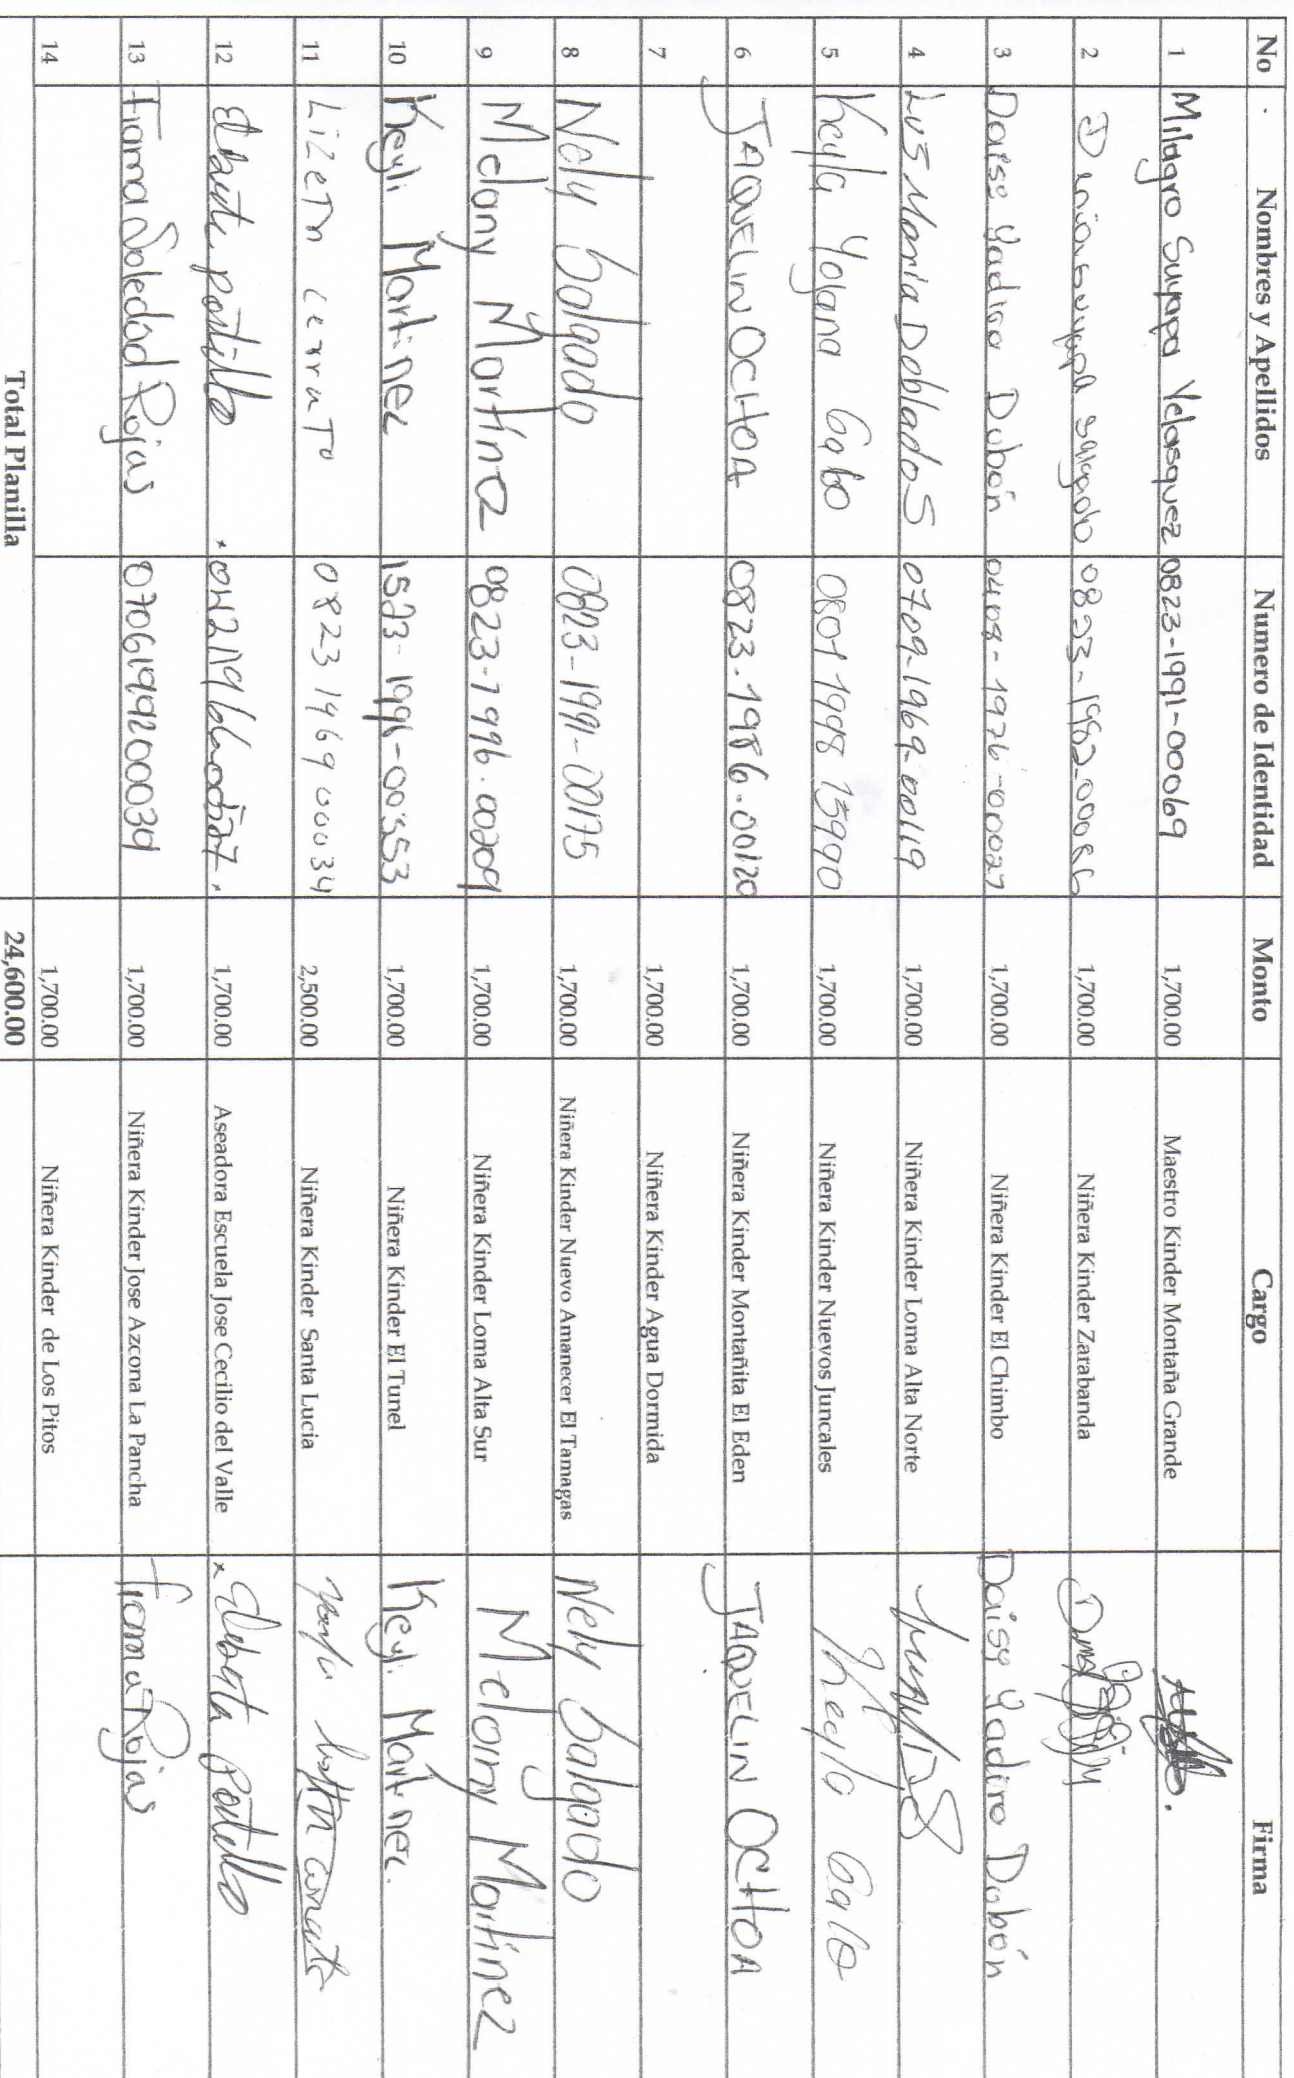 No Nombres y Apellidos Numero de Identidad Monto Cargo Firma
1 Milagro Suyapa Velasquez 0823-1991-00069 1,700.00 Maestro Kinder Montaña Grande
2 Suyapa Salgado 0823-1982-00086 1,700.00 Niñera Kinder Zarabanda
3 Daisy Yadira Dubón 0408-1976-00027 1,700.00 Niñera Kinder El Chimbo Daisy Yadira Dubón
4 Lus Maria Doblados 0709-1969-00119 1,700.00 Niñera Kinder Loma Alta Norte
5 Keyla Yojana Galo 0801 1998 15990 1,700.00 Niñera Kinder Nuevos Juncales Keyla Galo
6 JAQUELIN OCHOA 0823-1986-00120 1,700.00 Niñera Kinder Montañita El Eden JAQUELIN OCHOA
7 1,700.00 Niñera Kinder Agua Dormida
8 Nely Salgado 0823-1991-00175 1,700.00 Niñera Kinder Nuevo Amanecer El Tamagas Nely Salgado
9 Melany Martínez 0823-1996-00209 1,700.00 Niñera Kinder Loma Alta Sur Melany Martínez
10 Keyli Martinez 1523-1996-00353 1,700.00 Niñera Kinder El Tunel Keyli Martinez.
11 Lizeth Cerrato 0823 1969 00034 2,500.00 Niñera Kinder Santa Lucia
12 Portillo 1,700.00 Aseadora Escuela Jose Cecilio del Valle Portillo
13 Fiama Soledad Rojas 0706199200039 1,700.00 Niñera Kinder Jose Azcona La Pancha Fiama Rojas
14 1,700.00 Niñera Kinder de Los Pitos
Total Planilla 24,600.00